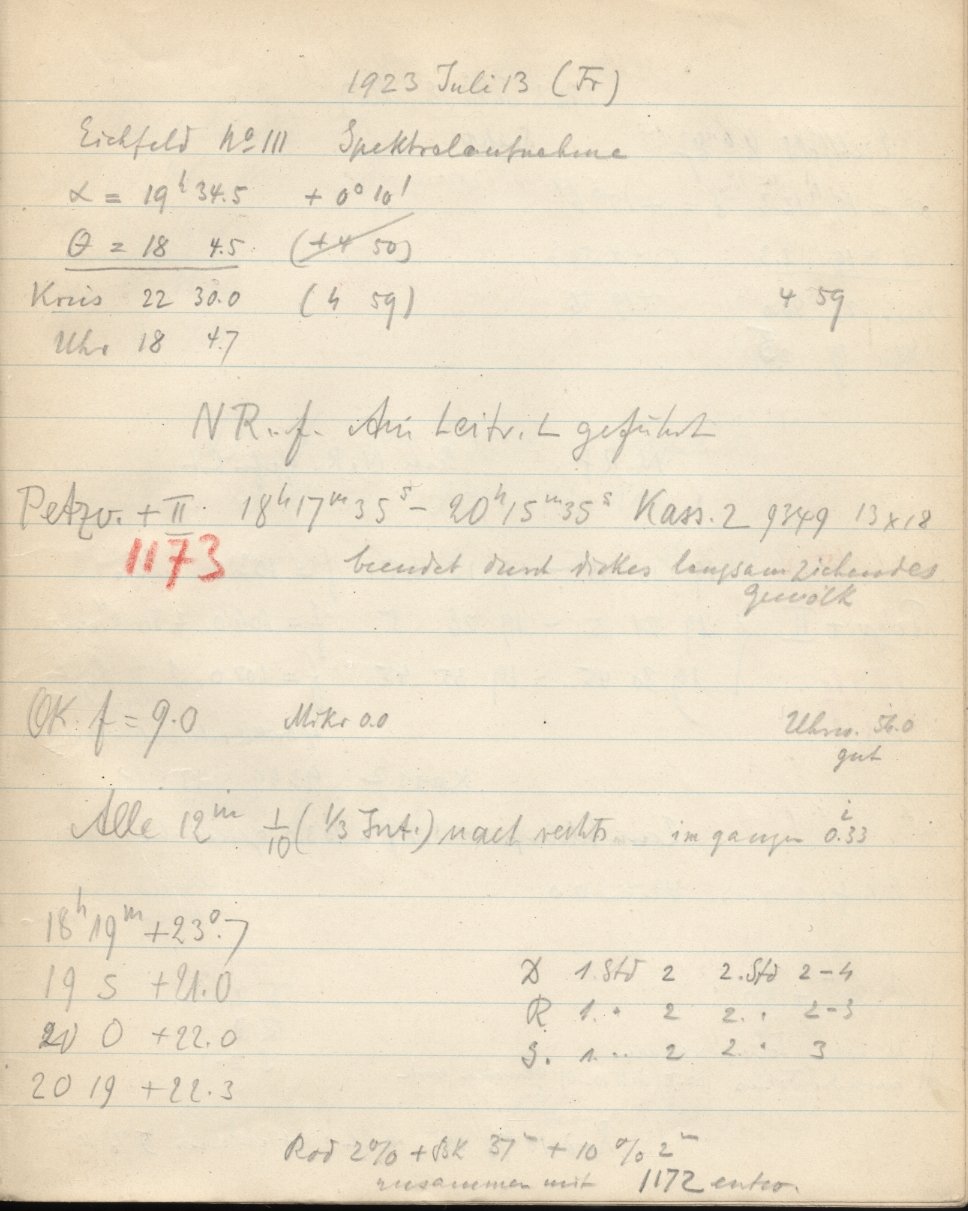 1923 Juli 13 (Fr)
Eichfeld No III Spektralaufnahme
α = 19h 34.5 + 0° 10'
θ = 18 4.5 (+4 50)
Kreis 22 30.0 (4 59) 4 59
Uhr 18 4.7
N R. f. Am Leitr. L geführt
Petzv. + II 18h17m35s - 20h15m35s Kass. 2 9349 13x18
1173 beendet durch dickes langsam ziehendes
Gewölk
OK. f = 9.0 Mikr 0.0 Uhrw. 56.0
gut
Alle 12m 1/10 (1/3 Int.) nach rechts im ganzen 0.33
18h 19m +23°.7
19 5 +21.0 D 1. Std 2 2. Std 2-4
20 0 +22.0 R 1. " 2 2. " 2-3
20 19 +22.3 S. 1. " 2 2. " 3
Rod 2% + BK 3m + 10% 2m
zusammen mit 1172 entw.